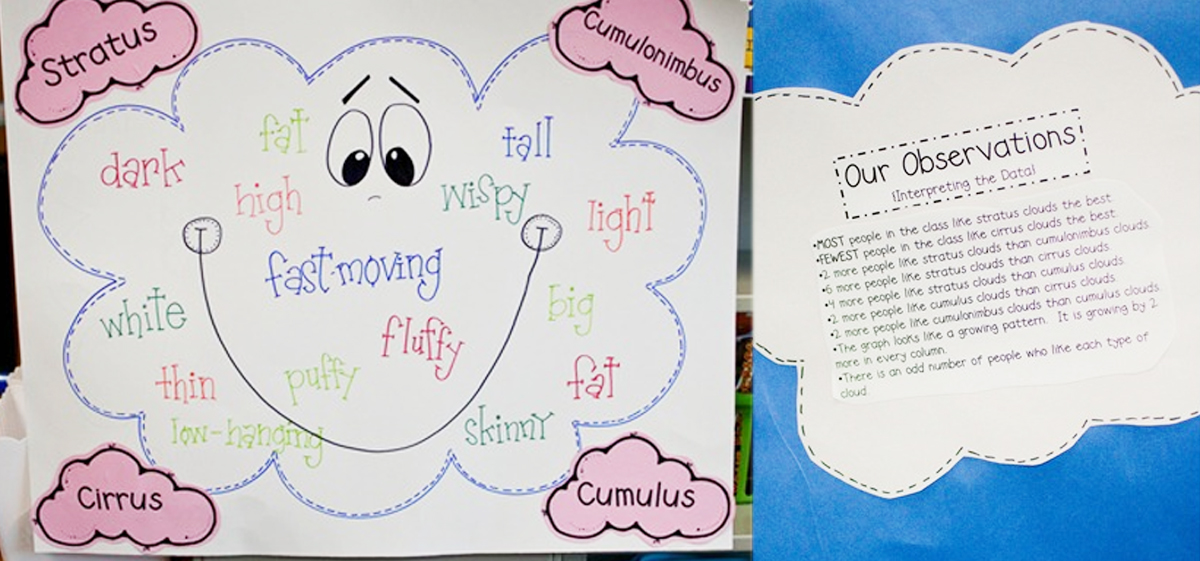 Stratus
Cumulonimbus
fat
tall
dark
high
wispy
light
fast-moving
white
big
fluffy
thin
puffy
fat
low-hanging
skinny
Cirrus
Cumulus
Our Observations
{Interpreting the Data}
•MOST people in the class like stratus clouds the best.
•FEWEST people in the class like cirrus clouds the best.
•2 more people like stratus clouds than cumulonimbus clouds.
•6 more people like stratus clouds than cirrus clouds.
•4 more people like stratus clouds than cumulus clouds.
•2 more people like cumulus clouds than cirrus clouds.
•2 more people like cumulonimbus clouds than cumulus clouds.
•The graph looks like a growing pattern. It is growing by 2
more in every column.
•There is an odd number of people who like each type of
cloud.